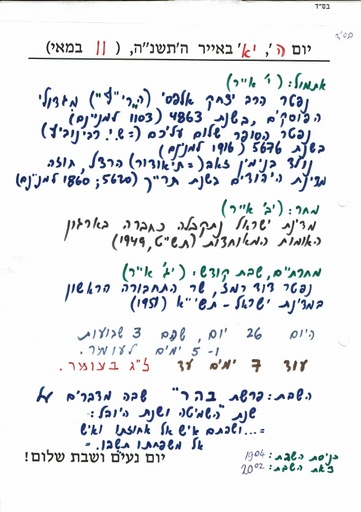 בס"ד
בס"ד
יום ה', י"א באייר ה'תשנ"ה, ( 11 במאי)
אתמול: (י' אייר)
נפטר הרב יצחק אלפסי (הרי"ף) מגדולי
הפוסקים, בשנת 4863 (1103 למנינם)
נפטר הסופר שלום עליכם (=ש.י. רבינוביץ)
בשנת 5676 (1916 למנינם)
נולד בנימין זאב (=תיאודור) הרצל, חוזה
מדינת היהודים בשנת תר"ך (5620; 1860 למנינם)
מחר: (י"ב אייר)
מדינת ישראל נתקבלה כחברה בארגון
האומות המאוחדות (תש"ט, 1949)
מחרתיים, שבת קודש: (י"ג אייר)
נפטר דוד רמז, שר התחבורה הראשון
במדינת ישראל - תשי"א (1951)
היום 26 יום, שהם 3 שבועות
ו- 5 ימים לעומר.
עוד 7 ימים עד ל"ג בעומר.
השבת: פרשת בהר" שבה מדברים על
שנת "השמיטה ושנת היובל:
=...ושבתם איש אל אחוזתו ואיש
אל משפחתו תשובו.=
כניסת השבת: 19:04
צאת השבת: 20:02
יום נעים ושבת שלום!